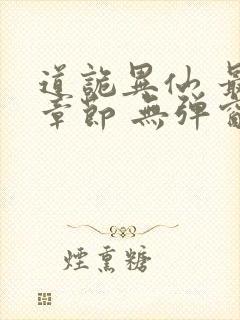 道詭異仙 最
章節 無彈窗
煙熏糖